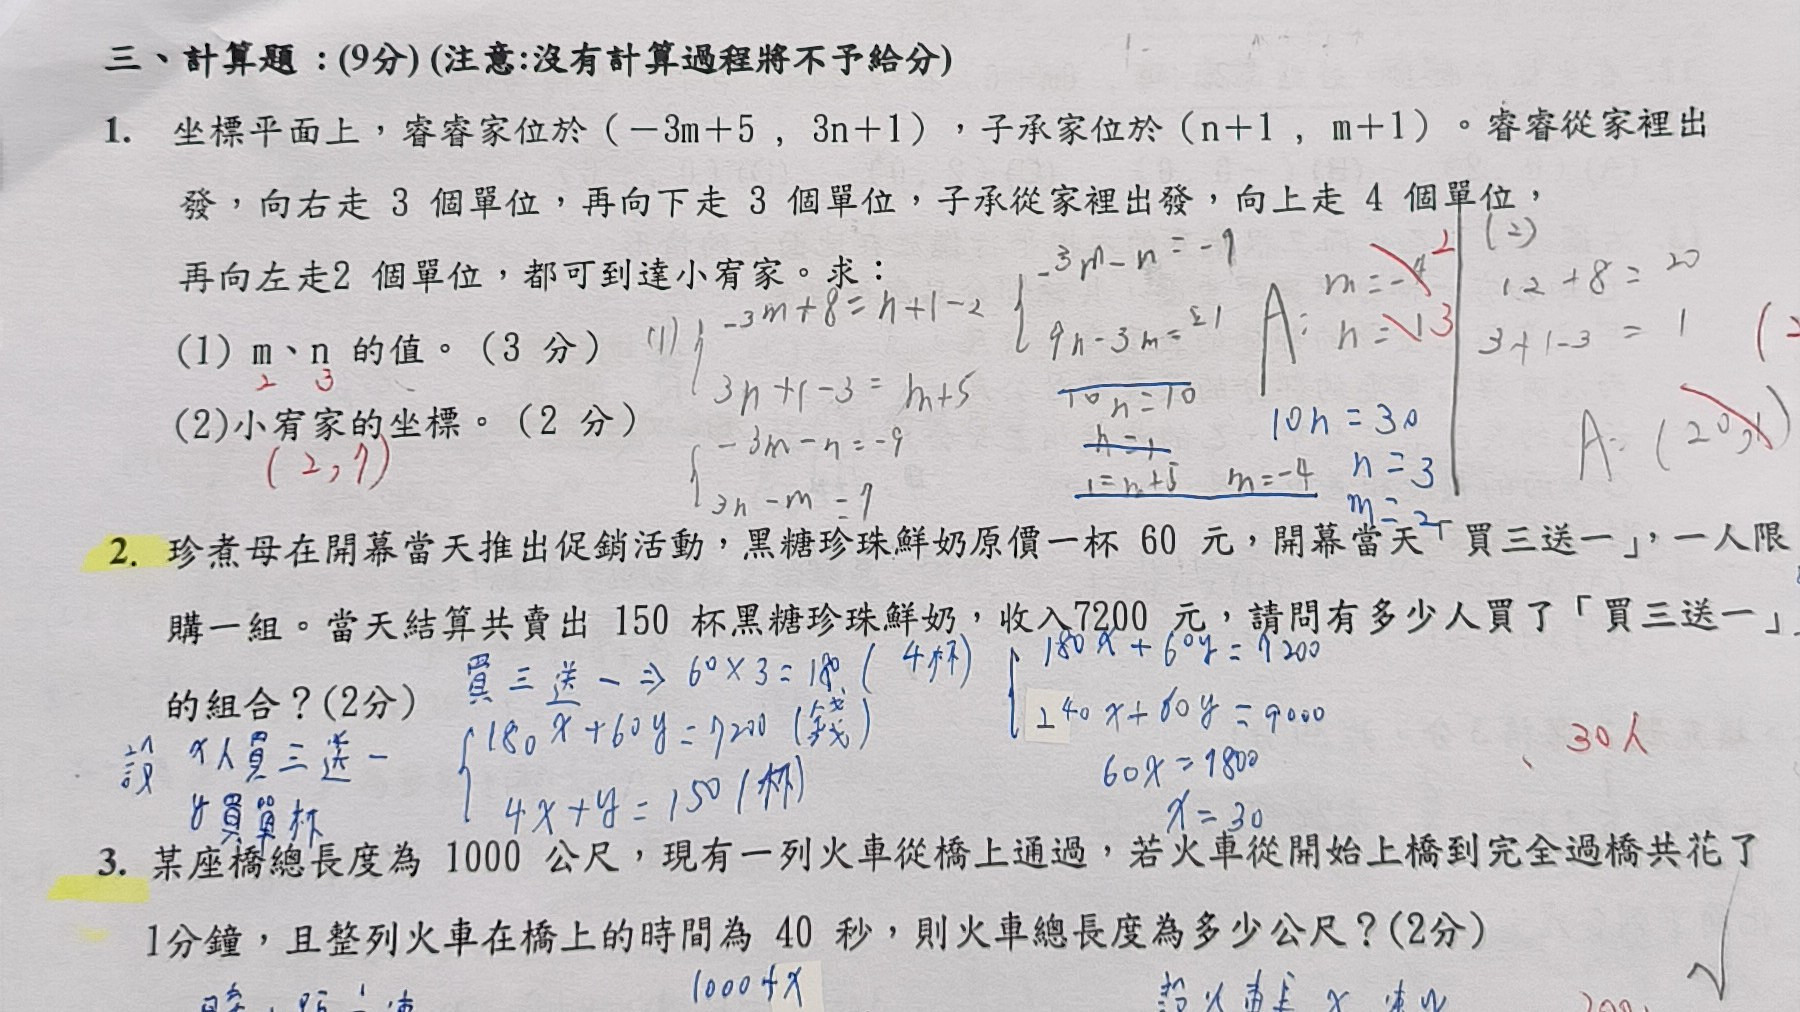 三、計算題：(9分) (注意:沒有計算過程將不予給分)
1. 坐標平面上，睿睿家位於（－3m＋5 , 3n＋1），子承家位於（n＋1 , m＋1）。睿睿從家裡出
發，向右走 3 個單位，再向下走 3 個單位，子承從家裡出發，向上走 4 個單位，
再向左走2 個單位，都可到達小宥家。求：
(1) m、n 的值。（3 分）
2 3
(2)小宥家的坐標。（2 分）
(2,7)
(1) -3m+8=n+1-2
3n+1-3=m+5
-3m-n=-9
3n-m=7
-3m-n=-9
9n-3m=21
10n=10
n=1
1=m+5 m=-4
A: m=-4 2
n=1 3
10n=30
n=3
m=2
(2)
12+8=20
3+1-3=1
A: (20,1)
2. 珍煮母在開幕當天推出促銷活動，黑糖珍珠鮮奶原價一杯 60 元，開幕當天「買三送一」，一人限
購一組。當天結算共賣出 150 杯黑糖珍珠鮮奶，收入7200 元，請問有多少人買了「買三送一」
的組合？(2分)
買三送一⇒60×3=180 (4杯)
設 x人買三送一
y買單杯
180x+60y=7200 (錢)
4x+y=150 (杯)
180x+60y=7200
240x+60y=9000
60x=1800
x=30
30人
3. 某座橋總長度為 1000 公尺，現有一列火車從橋上通過，若火車從開始上橋到完全過橋共花了
1分鐘，且整列火車在橋上的時間為 40 秒，則火車總長度為多少公尺？(2分)
1000+x
設火車長 x